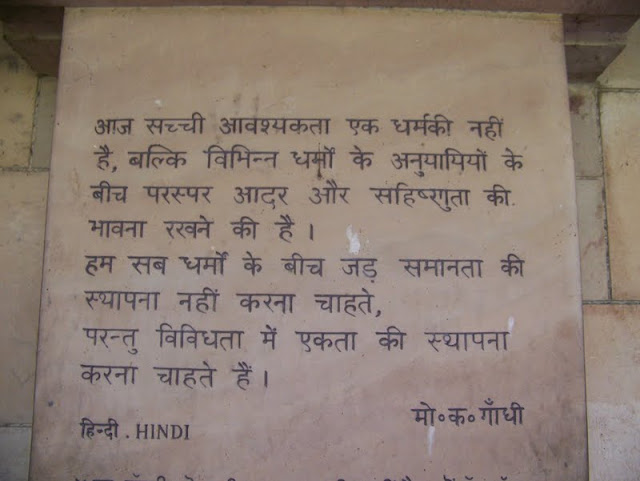 आज सच्ची आवश्यकता एक धर्मकी नहीं
है, बल्कि विभिन्न धर्मों के अनुयायियों के
बीच परस्पर आदर और सहिष्णुता की
भावना रखने की है ।
हम सब धर्मों के बीच जड़ समानता की
स्थापना नहीं करना चाहते,
परन्तु विविधता में एकता की स्थापना
करना चाहते हैं ।
मो॰क॰गाँधी
हिन्दी . HINDI